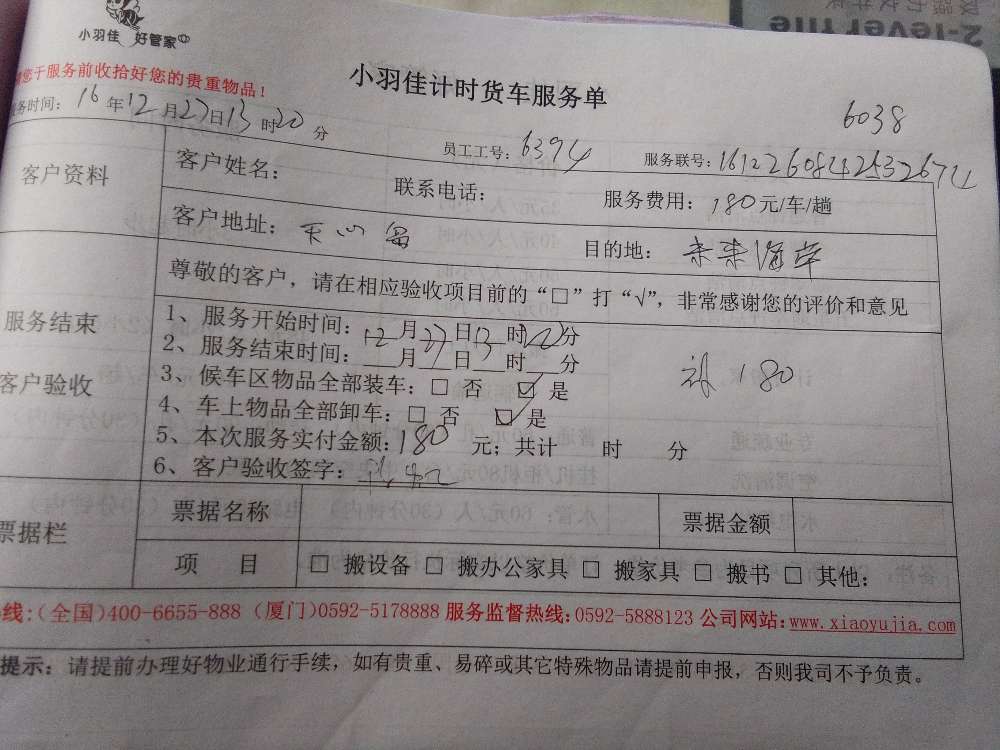 小羽佳 好管家
2-level file
您于服务前收拾好您的贵重物品！
小羽佳计时货车服务单
6038
务时间： 16 年 12 月 27 日 13 时 20 分
员工工号：6394
服务联号：161226084253267
客户资料
客户姓名：
联系电话：
服务费用：180元/车/趟
客户地址：天心岛
目的地：未来海岸
尊敬的客户，请在相应验收项目前的“□”打“√”，非常感谢您的评价和意见
服务结束
客户验收
1、服务开始时间：12月27日13时20分
2、服务结束时间： 月 27 日 13 时 分
3、候车区物品全部装车：□ 否 ☑ 是
4、车上物品全部卸车：□ 否 ☑ 是
5、本次服务实付金额：180 元；共计 时 分
6、客户验收签字：
180
票据栏
票据名称
票据金额
项 目
□ 搬设备 □ 搬办公家具 □ 搬家具 □ 搬书 □ 其他：
线：（全国）400-6655-888（厦门）0592-5178888 服务监督热线：0592-5888123 公司网站：www.xiaoyujia.com
提示：请提前办理好物业通行手续，如有贵重、易碎或其它特殊物品请提前申报，否则我司不予负责。